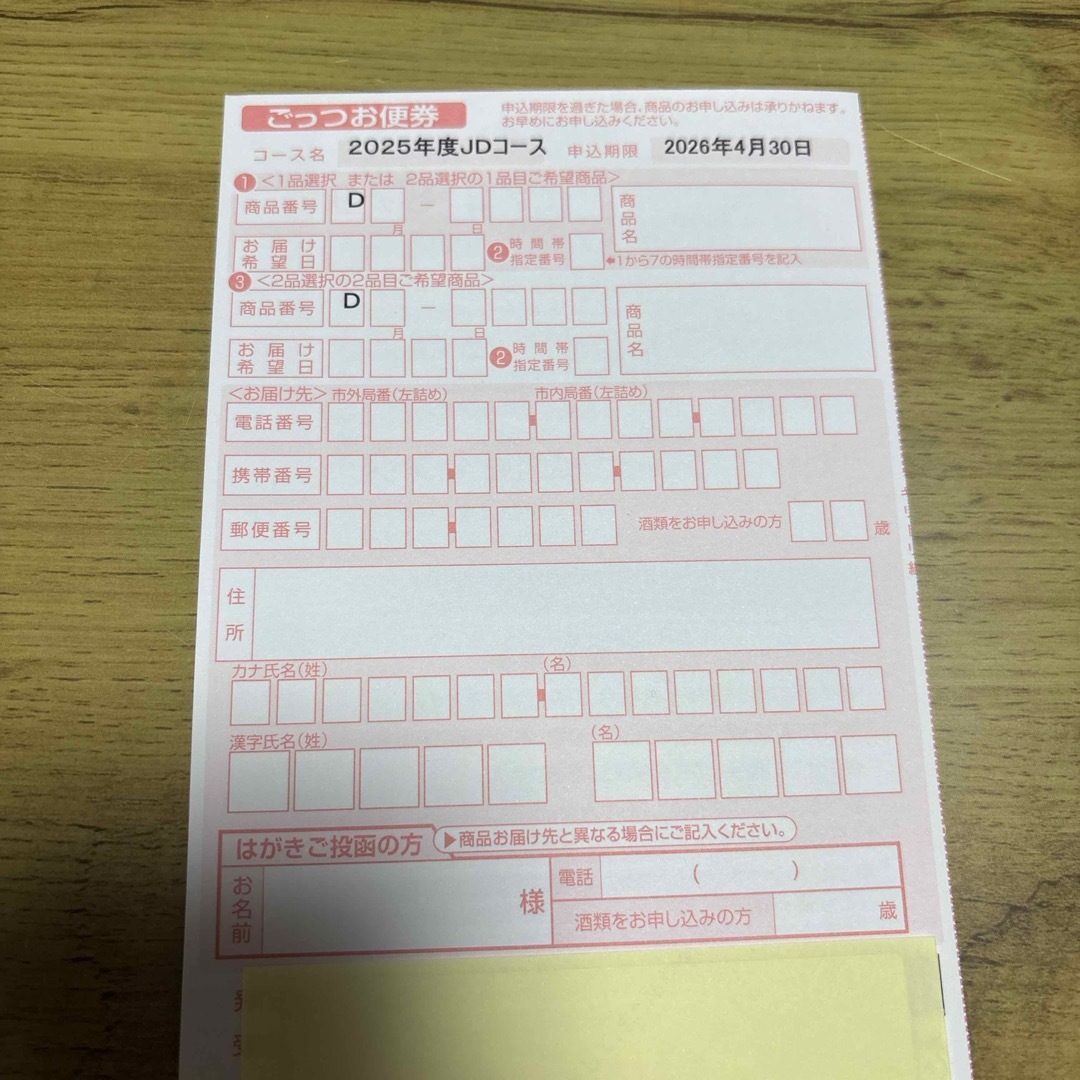 ごっつお便券
申込期限を過ぎた場合、商品のお申し込みは承りかねます。
お早めにお申し込みください。
コース名 2025年度JDコース 申込期限 2026年4月30日
1 <1品選択 または 2品選択の1品目ご希望商品>
商品番号 D － 商品名
お届け希望日 月 日 2 時間帯指定番号 1から7の時間帯指定番号を記入
3 <2品選択の2品目ご希望商品>
商品番号 D － 商品名
お届け希望日 月 日 2 時間帯指定番号
<お届け先> 市外局番(左詰め) 市内局番(左詰め)
電話番号
携帯番号
郵便番号 酒類をお申し込みの方 歳
住所
カナ氏名(姓) (名)
漢字氏名(姓) (名)
はがきご投函の方 ▶商品お届け先と異なる場合にご記入ください。
お名前 様 電話 ( )
酒類をお申し込みの方 歳